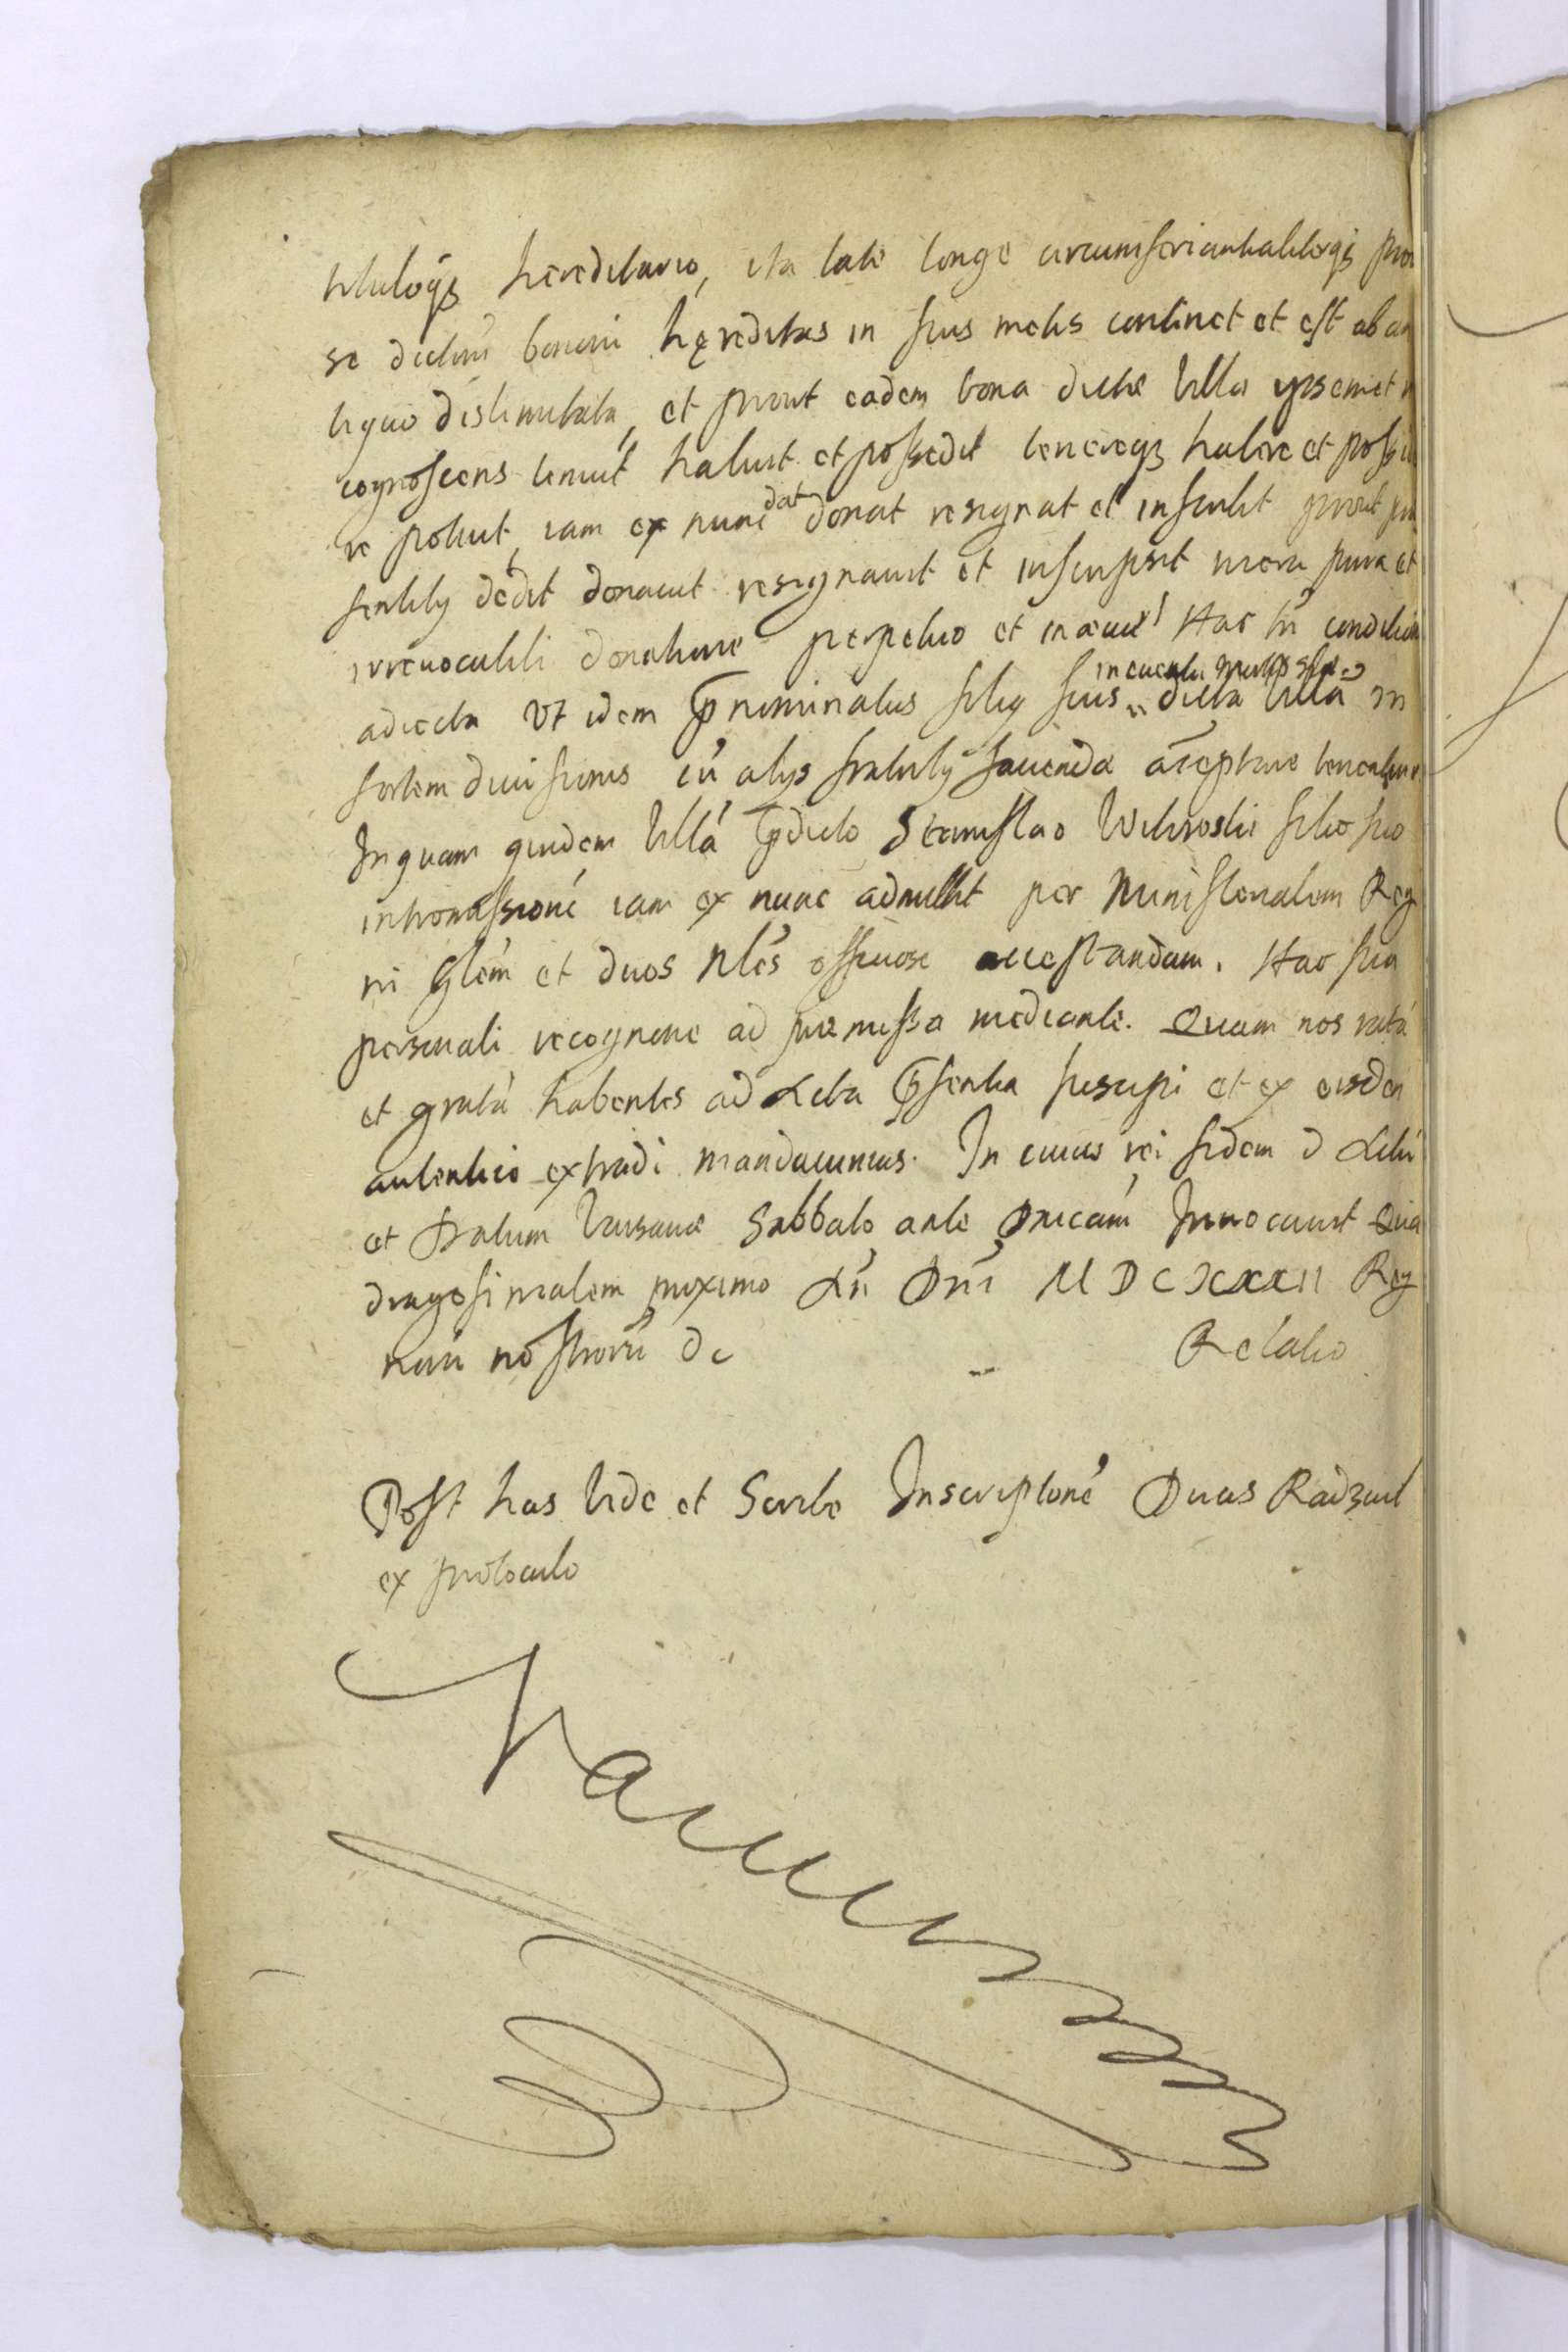 tituloq₃ hereditario, ita late longe circumferentialiterq₃ pro
se dictorũ bonorũ hęreditas in suis metis continet et est ab an
tiquo distinctata, et prout eadem bona dictæ Villæ ipsemet
cognoscens tenuit habuit et possedit tenereq₃ habere et posside
re potuit, iam ex nunc dat donat resignat et inscribit prout præ
sentibq dedit donavit resignavit et inscripsit mera pura et
irrevocabili donatione perpetuo et in ævũ Hac tñ conditione
adiecta Vt idem p̄nominatus filiq suus in eventu dicta Villã in
sortem divisionis cũ alys fratribq facienda acceptare teneatur
In quam quidem Villã p̄dicto Stanislao filio suo
intromissionẽ iam ex nunc admittit per Ministerialem Reg
ni Gl̃em et duos Nles officiose attestandam. Hac sua
personali recognne ad præmissa mediante. Quam nos ratã
et gratã habentes ad Acta p̄sentia suscipi et ex eisdem
autentico extradi mandavimus. In cuius rei fidem Actũ
et Datum Varsaviæ Sabbato ante Dnicam Invocavit Qua
dragesimalem proximo Añ Dñi MDCXXXII Reg
norũ nostrorũ Relatio
Post has Vide et Scribe Inscriptionẽ Ducis Radzivil
ex protoculo